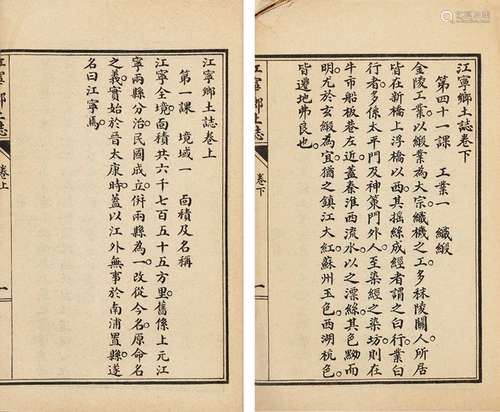 江寧鄉土誌卷下
第四十一課 工業一 織緞
金陵工業。以緞業為大宗。織機之工。多秣陵關人。所居
皆在新橋上浮橋以西。其搖絲成經者謂之白行。業白
行者。多係太平門及神策門外人。至染經之染坊。則在
牛市船板巷左近。蓋秦淮西流水。以之漂絲。其色黝而
明。尤於玄緞為宜。猶之鎮江大紅。蘇州玉色。西湖杭色。
皆遷地弗良也。
卷下
一
江寧鄉土誌卷上
第一課 境域一 面積及名稱
江寧全境面積共六千七百五十五方里。舊係上元江
寧兩縣分治。民國成立。併兩縣為一。改從今名。原命名
之義。實始於晉太康時。蓋以江外無事。於南浦置縣。遂
名曰江寧焉。
卷上
一